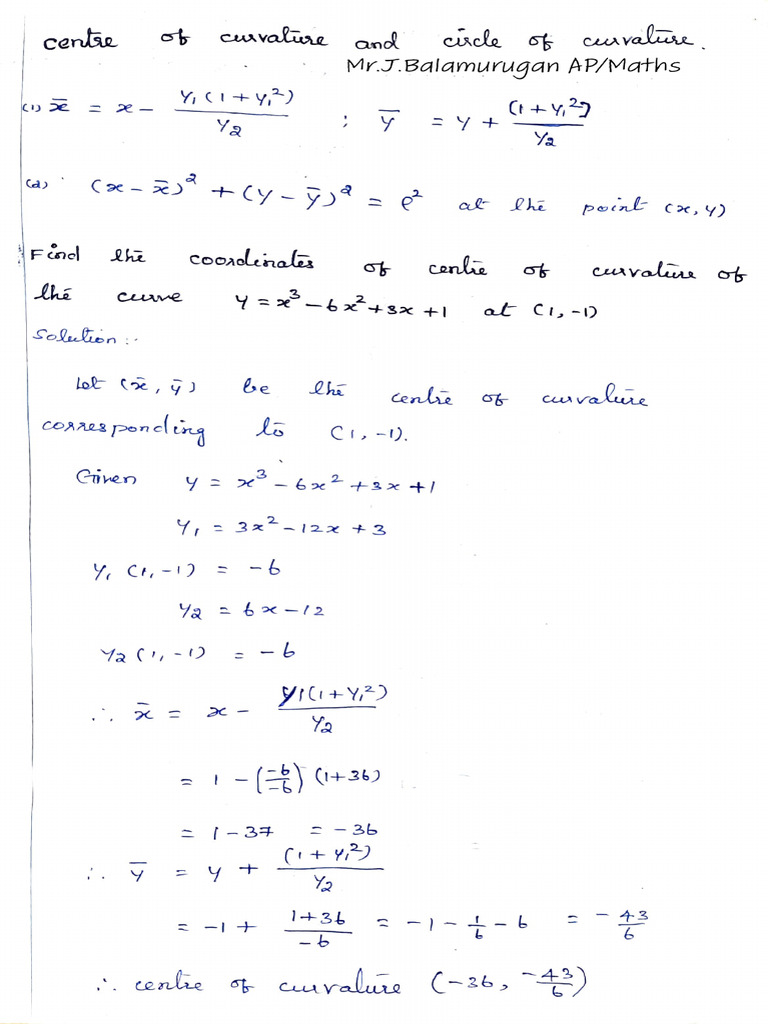 centre of curvature and circle of curvature.
Mr.J.Balamurugan AP/Maths
(1) x̄ = x - y₁(1+y₁²)/y₂ ; ȳ = y + (1+y₁²)/y₂
(2) (x - x̄)² + (y - ȳ)² = ρ² at the point (x, y)
Find the coordinates of centre of curvature of
the curve y = x³ - 6x² + 3x + 1 at (1, -1)
Solution:
Let (x̄, ȳ) be the centre of curvature
corresponding to (1, -1).
Given y = x³ - 6x² + 3x + 1
y₁ = 3x² - 12x + 3
y₁ (1, -1) = -6
y₂ = 6x - 12
y₂ (1, -1) = -6
∴ x̄ = x - y₁(1+y₁²)/y₂
= 1 - (-6/-6) (1+36)
= 1 - 37 = -36
∴ ȳ = y + (1+y₁²)/y₂
= -1 + 1+36/-6 = -1 - 1/6 - 6 = -43/6
∴ centre of curvature (-36, -43/6)